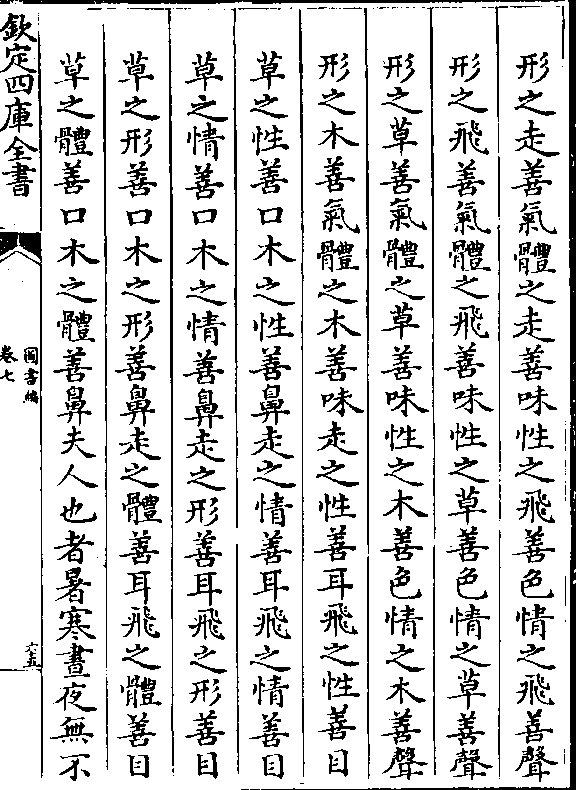 形之走善氣體之走善味性之飛善色情之飛善聲
形之飛善氣體之飛善味性之草善色情之草善聲
形之草善氣體之草善味性之木善色情之木善聲
形之木善氣體之木善味走之性善耳飛之性善目
草之性善口木之性善鼻走之情善耳飛之情善目
草之情善口木之情善鼻走之形善耳飛之形善目
草之形善口木之形善鼻走之體善耳飛之體善目
草之體善口木之體善鼻夫人也者暑寒晝夜無不
欽定四庫全書
圖書編
卷七
六十五